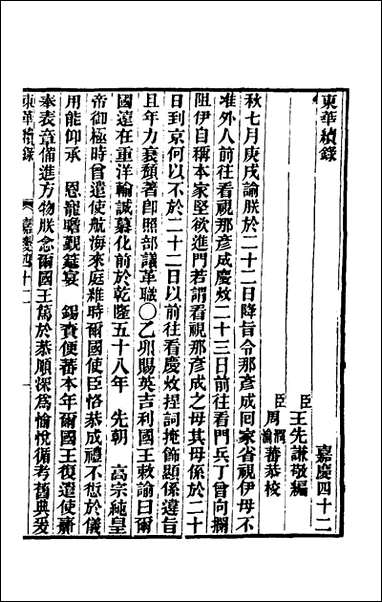 東華續錄　嘉慶四十二
臣王先謙敬編
臣周潤瀹蕃恭校
秋七月庚戌諭朕於二十二日降旨令那彥成回家省視伊母不
准外人前往看視那彥成慶炆二十三日前往看門兵丁曾向攔
阻伊自稱本家堅欲進門若謂看視那彥成之母其母係於二十
日到京何以不於二十二日以前往看慶炆捏詞掩飾顯係違旨
且年力衰頹著卽照部議革職○乙卯賜英吉利國王敕諭曰爾
國遠在重洋輸誠慕化前於乾隆五十八年　先朝　高宗純皇
帝御極時曾遣使航海來庭維時爾國使臣恪恭成禮不愆於儀
用能仰承　恩寵瞻覲筵宴　錫賚便蕃本年爾國王復遣使齎
奉表章備進方物朕念爾國王篤於恭順深爲愉悅循考舊典爰
東華續錄　嘉慶四十二　一